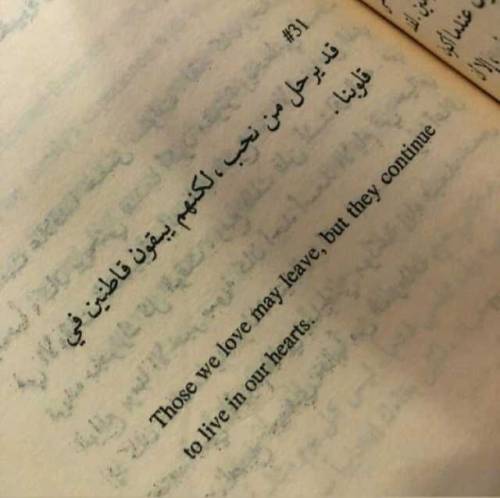 #31
قد يرحل من نحب، لكنهم يبقون قاطنين في
قلوبنا.
Those we love may leave, but they continue
to live in our hearts.